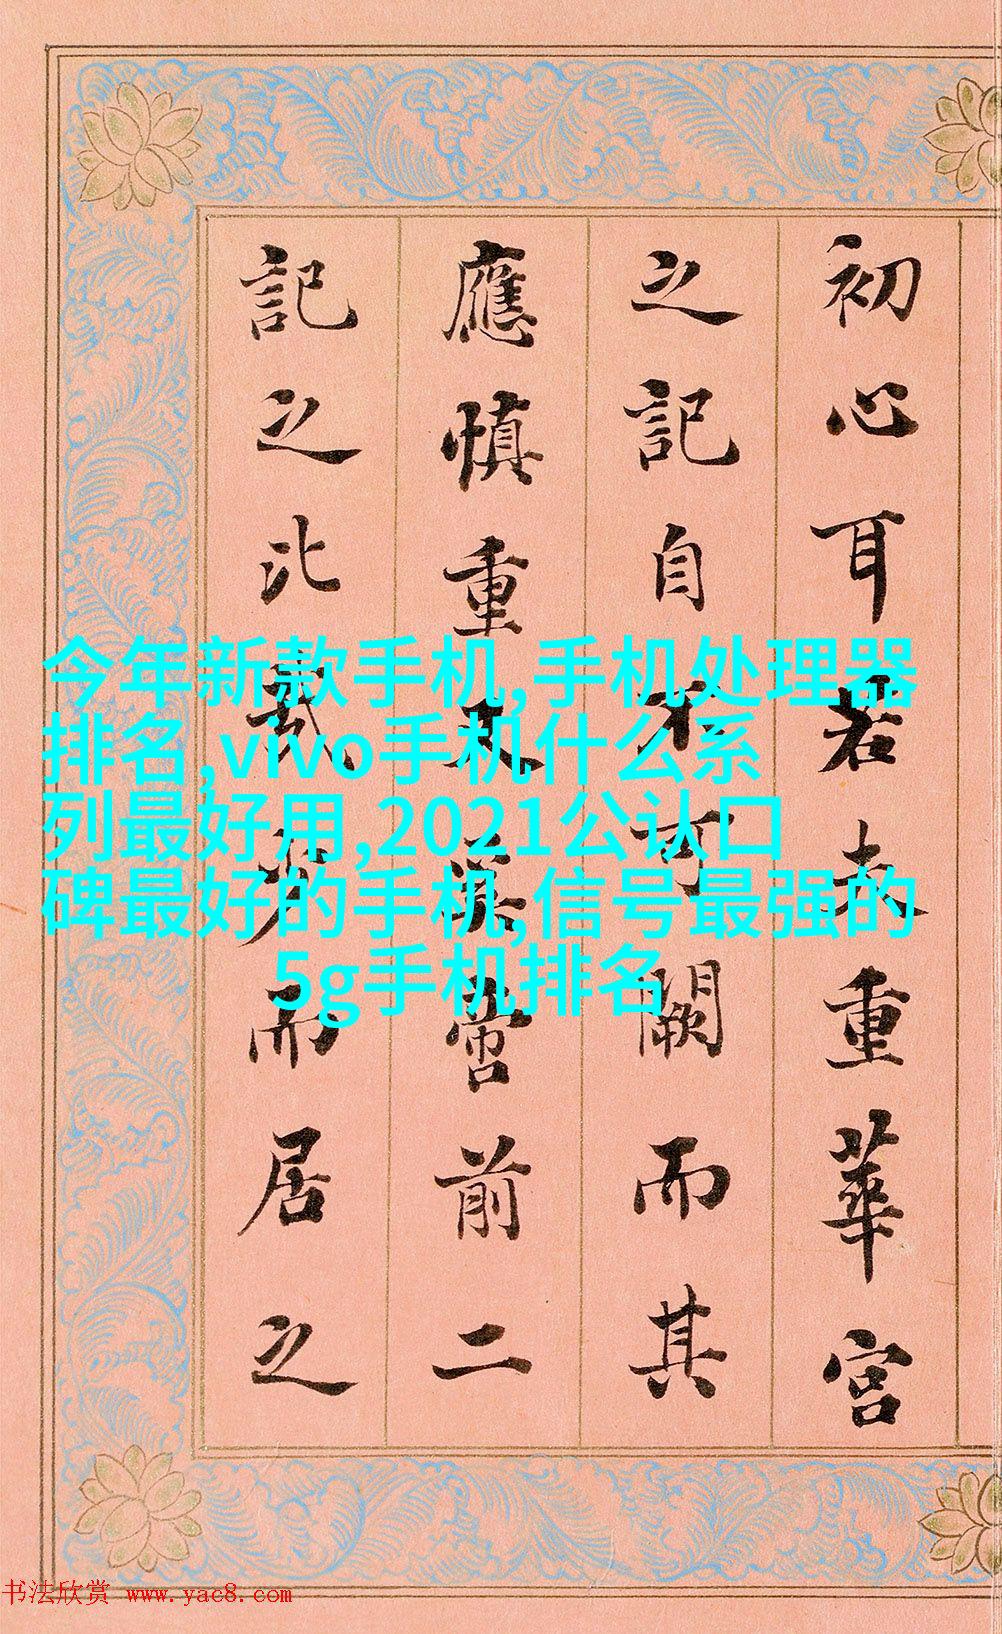 初心耳若夫重華宮
之記自不可闕而其
應慎重又啻前二
記之比哉而居之
今年新款手机,手机处理器
排名,vivo手机什么系
列最好用,2021公认口
碑最好的手机,信号最强的
5g手机排名
书法欣赏 www.yac8.com